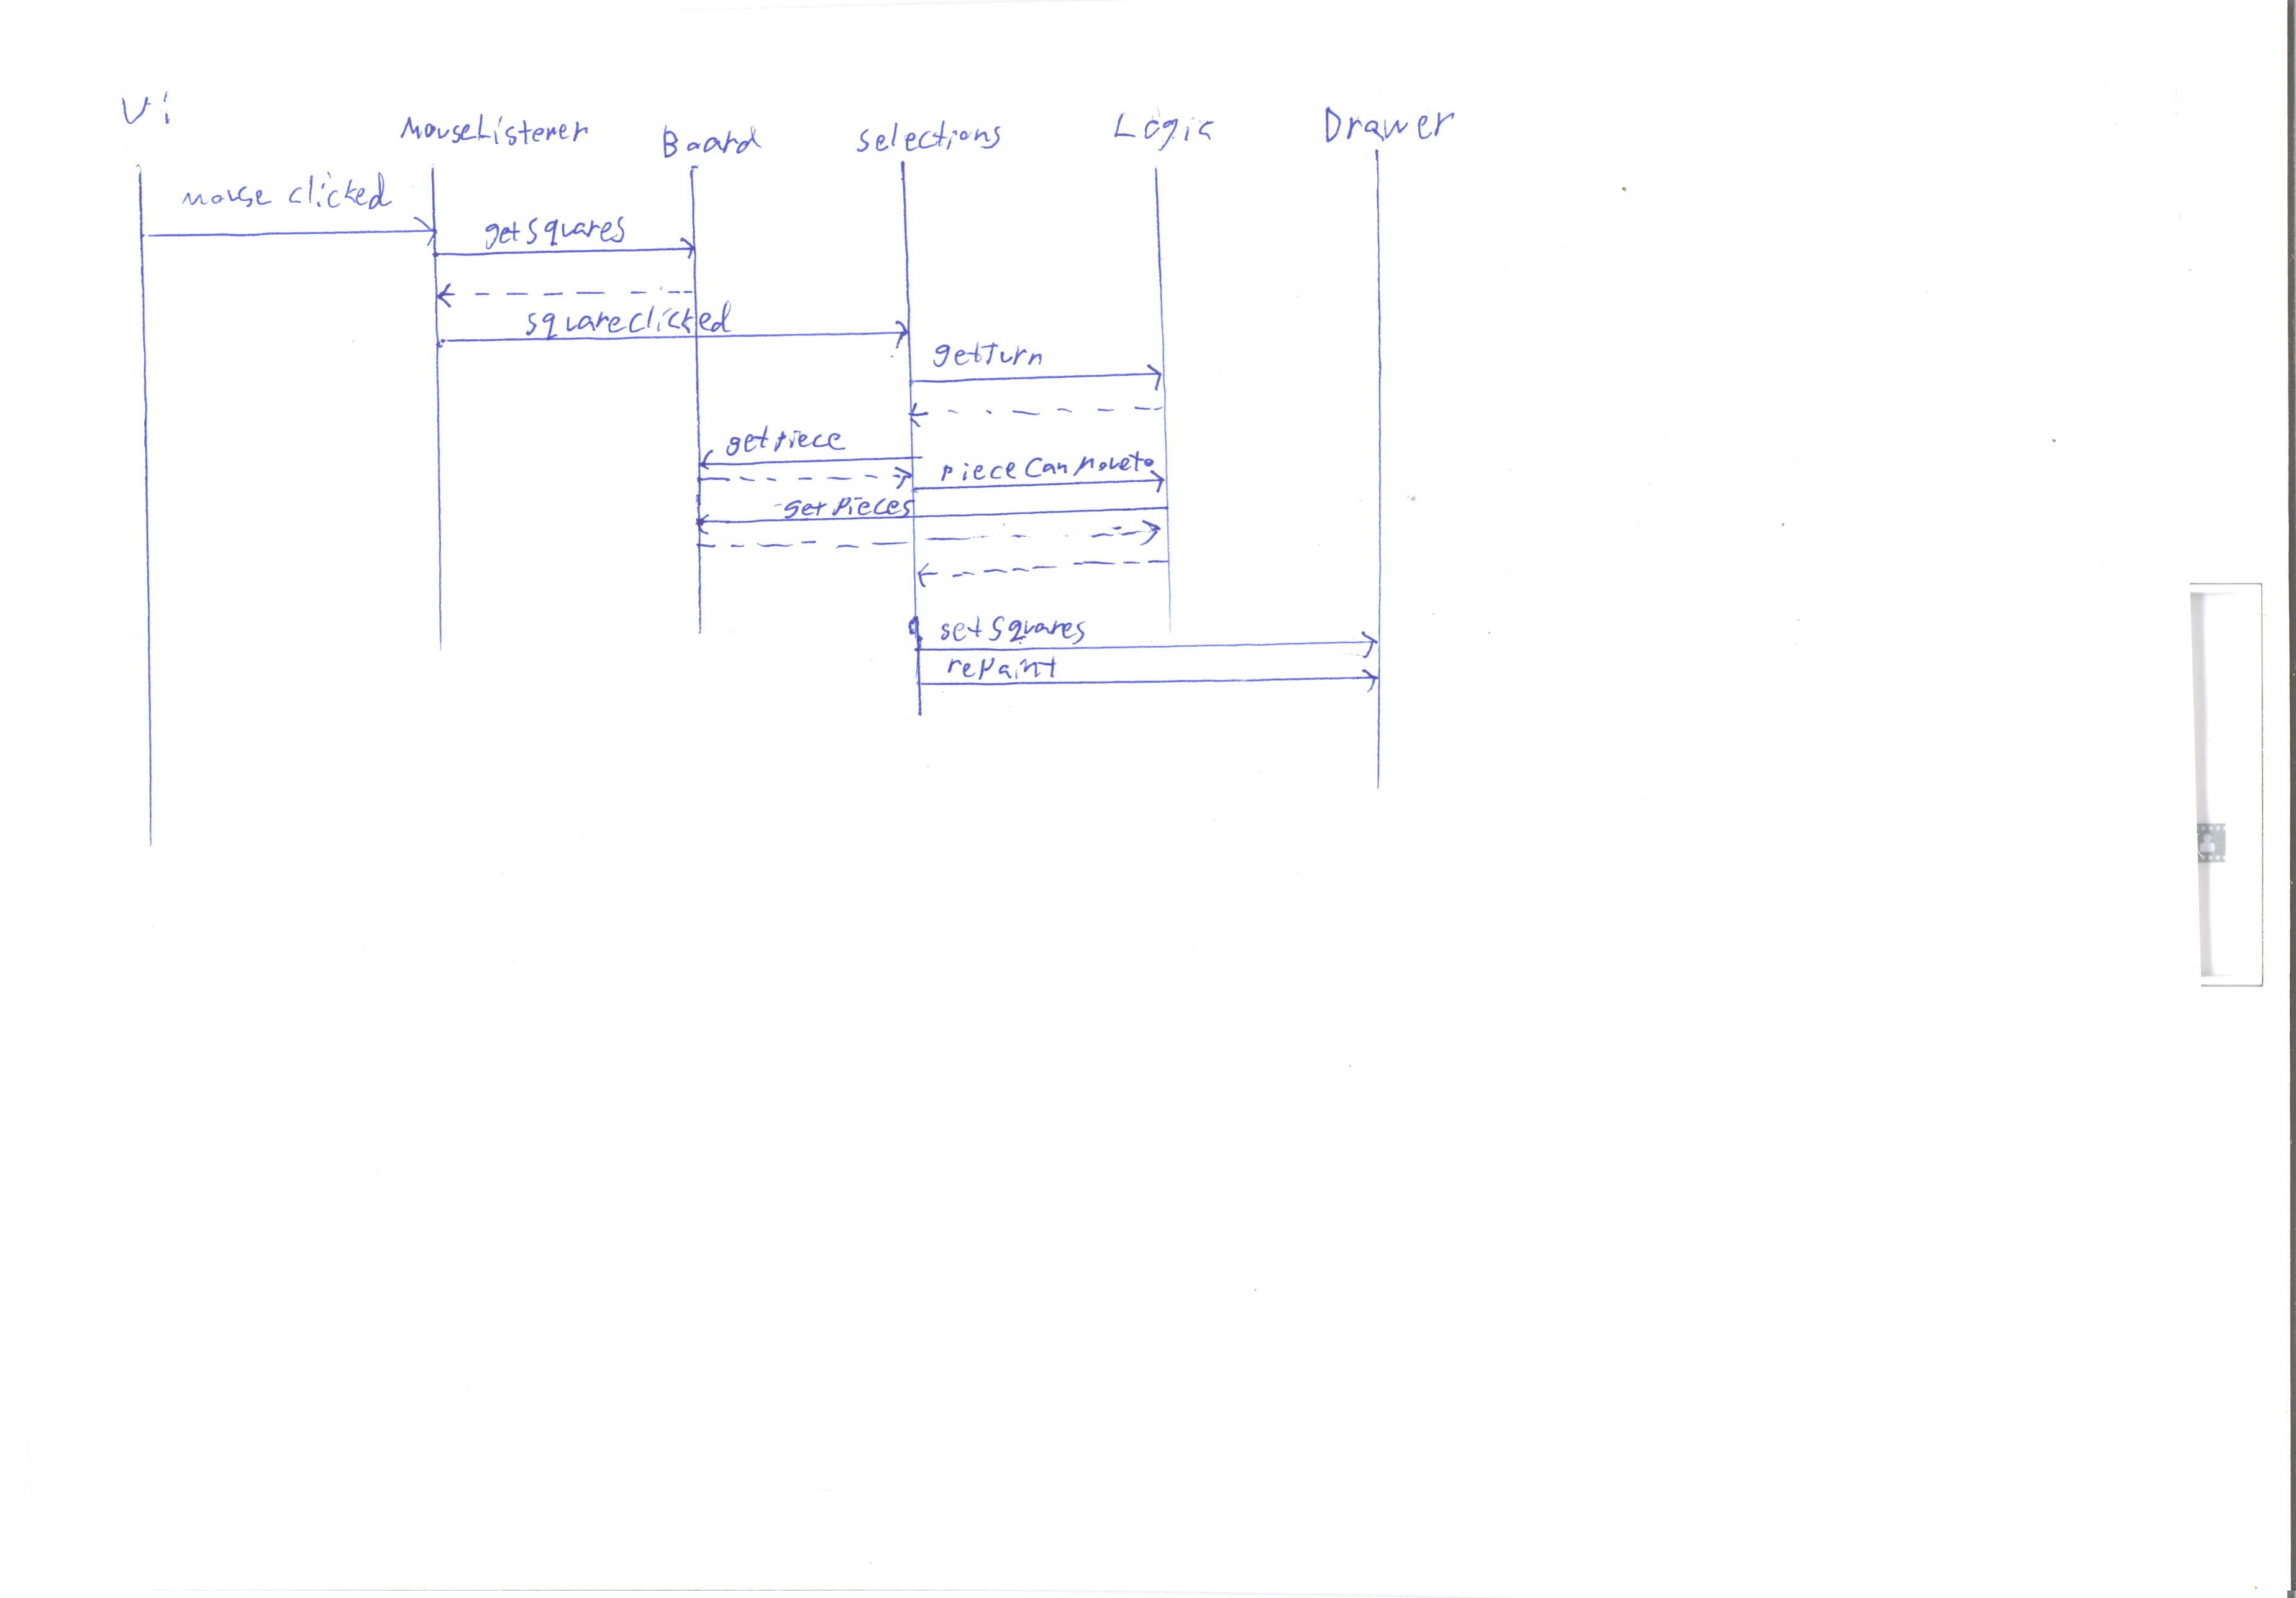 Ui MouseListener Board selections Logic Drawer
mouse clicked
getSquares
squareclicked
getTurn
getPiece
pieceCanMoveto
getPieces
setSquares
repaint